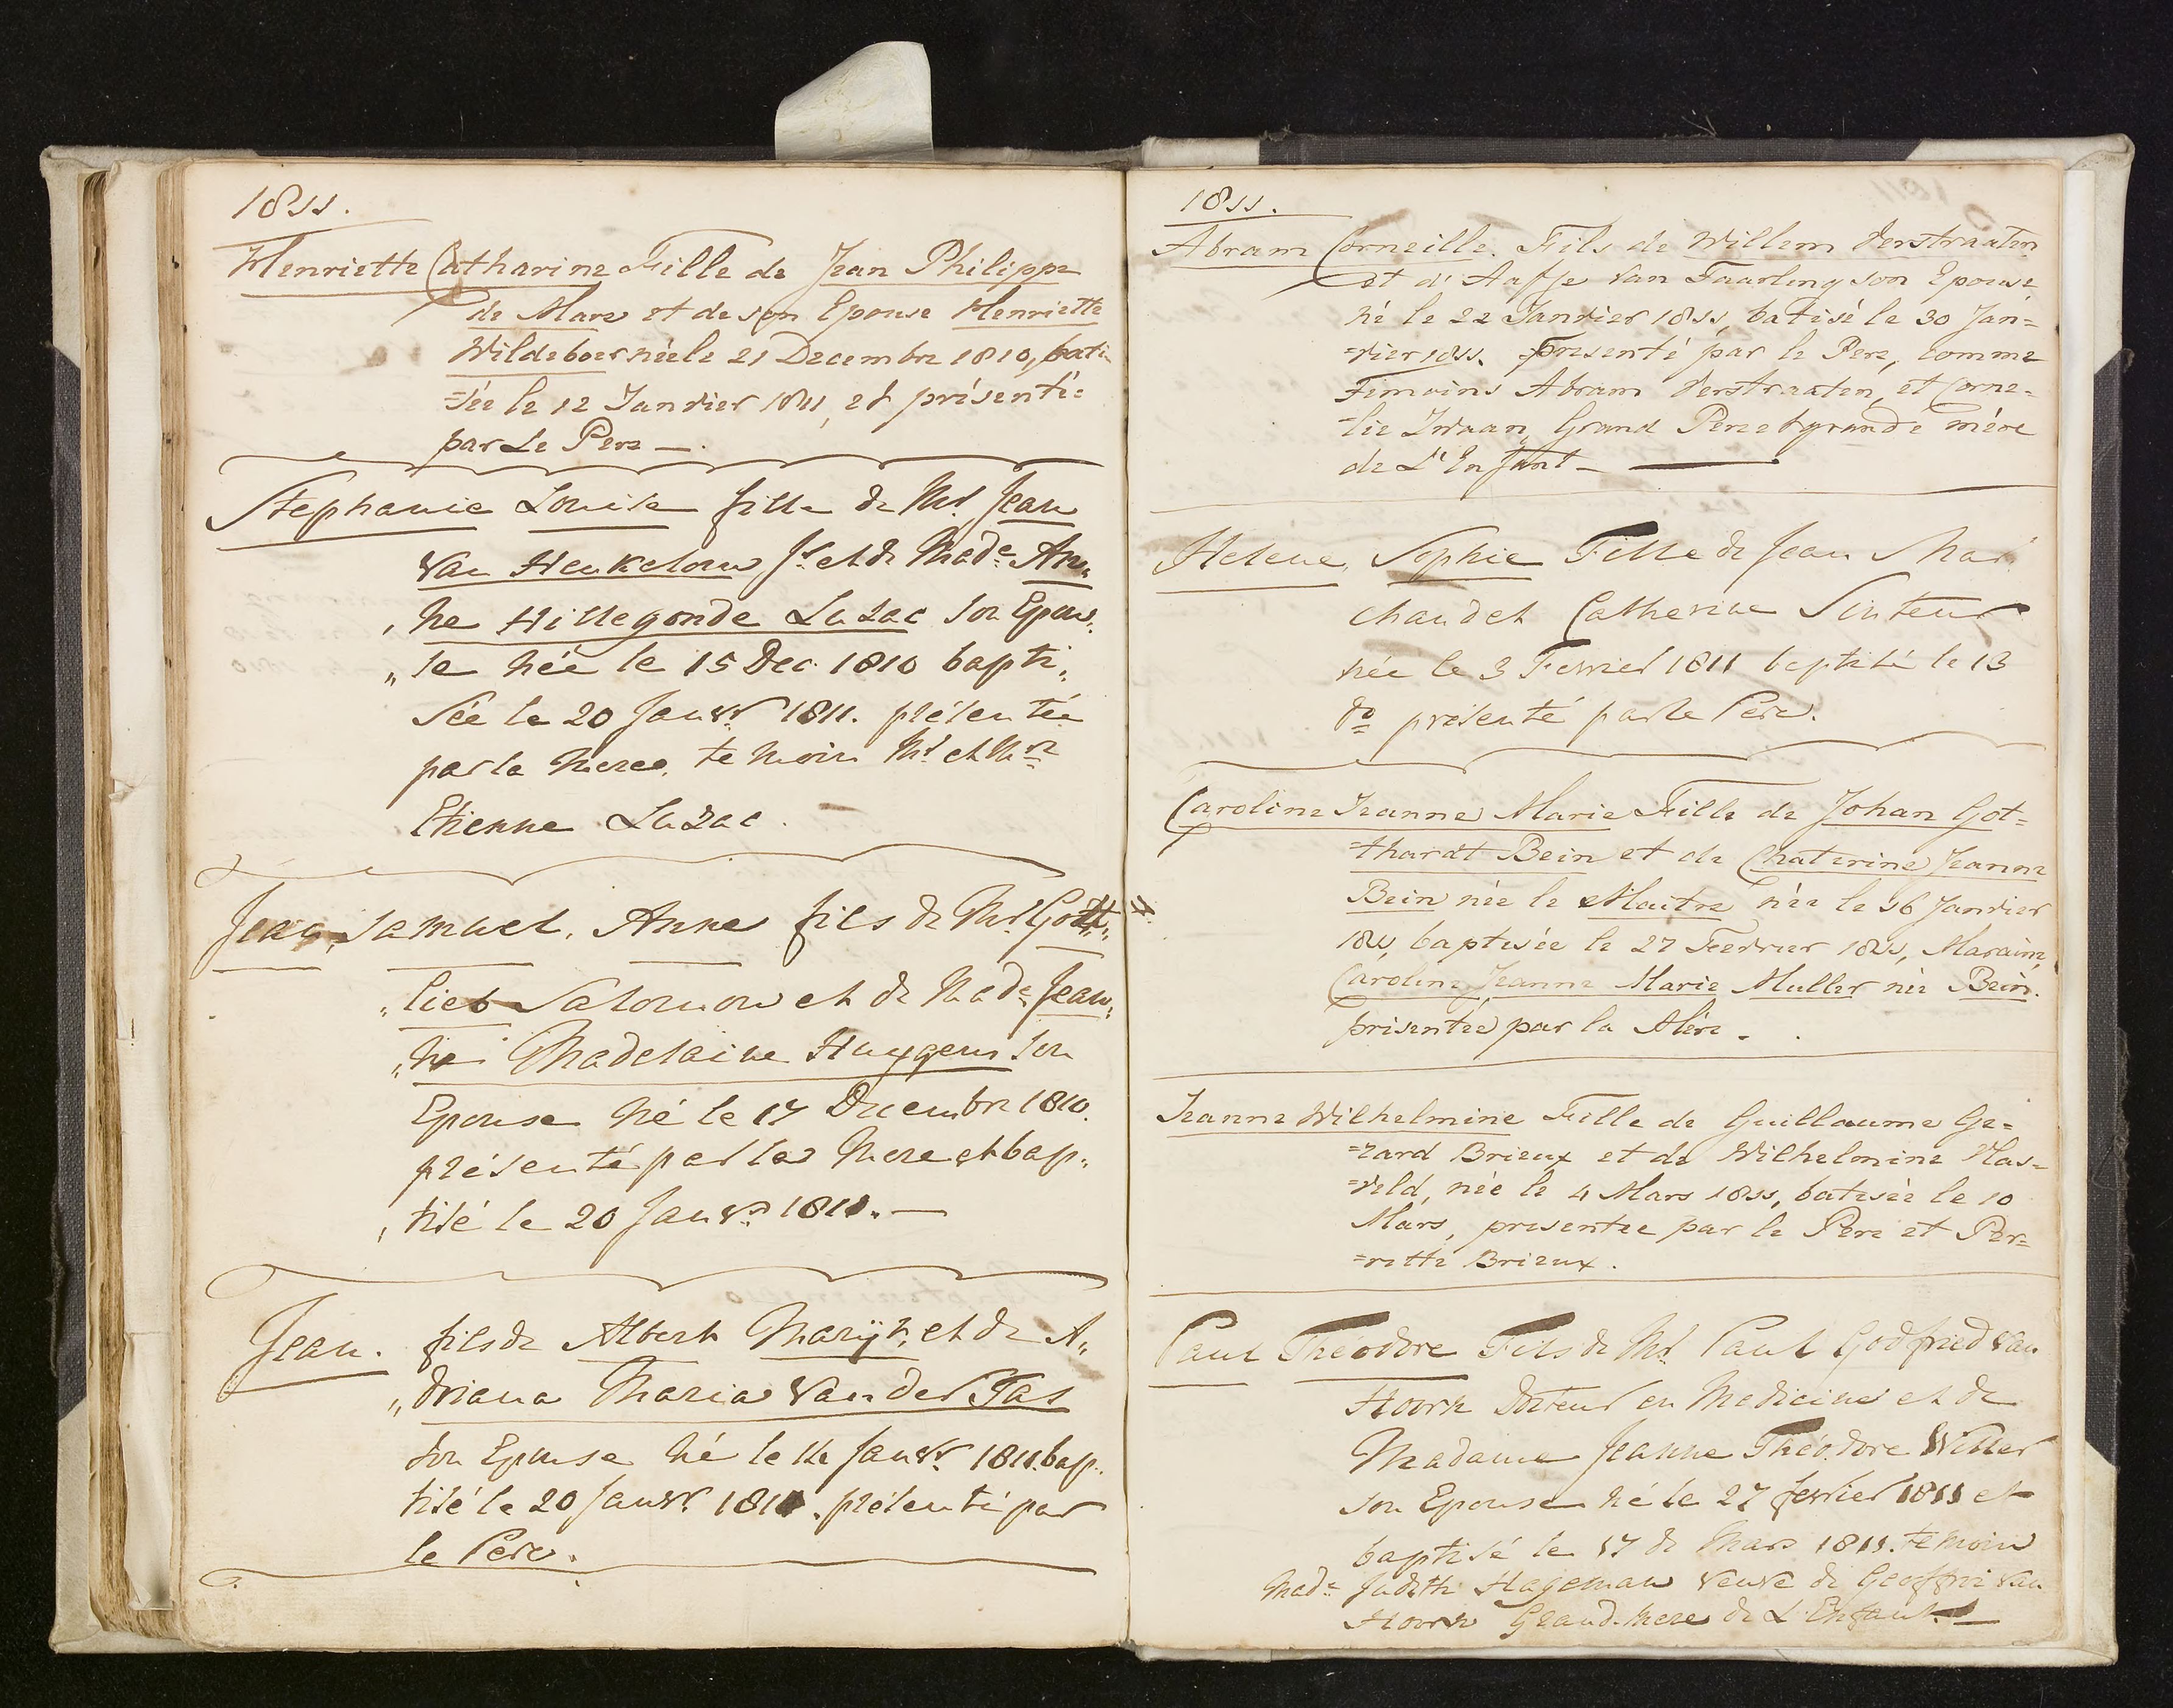 1811.
Henriette Catharine Fille de Jean Philippe
de Mare et de son Epouse Henriette
Wildeboer née le 21 Decembre 1810, bati
=sée le 12 Janvier 1811, et présenté=
par Le Pere —
Stephanie Louise fille de Mr. Jean
van Heukelom Jr. et de Made. An„
„ne Hillegonde Luzac son Epou„
„se née le 15 Dec. 1810 bapti„
sée le 20 Janvr. 1811. présentée
par la Mere, temoin Mr. et Me
Etienne Luzac.
Jean, Samuel, Anne fils de Mr. Gott„
„lieb Salomon et de Made. Jean„
„ne Madelaine Huygens son
Epouse né le 17 Decembre 1810.
présenté par la Mere et bap„
„tisé le 20 Janvr. 1811. —
Jean. fils de Albert Marijt, et de A„
„driana Maria van der Tas
son Epouse né le 11e Janvr. 1811. bap„
tisé le 20 Janvr. 1811. présenté par
le Pere.
1811.
Abram Corneille. Fils de Willem Verstraaten
et d'Aafje van Taarling son Epouse
né le 22 Janvier 1811, batisé le 30 Jan=
=vier 1811. presenté par le Pere, comme
Temoins Abram Verstraaten, et Corne=
=lie Zwaan, Grand Pere et grande mére
de L'Enfant —
Helene, Sophie Fille de Jean Mar
chand et Catherine Sinteur
née le 3 Fevrier 1811 baptisé le 13
do présenté par le Pere.
Caroline Jeanne Marie Fille de Johan Got=
=thardt Bein et de Chaterine Jeanne
Bein née le Maitre née le 16 Janvier
1811, baptisée le 27 Feevrier 1811, Maraine,
Caroline Jeanne Marie Muller née Bein.
présentée par la Mère.
Jeanne Wilhelmine Fille de Guillaume Ge=
=rard Brieux et de Wilhelmine Has=
=veld, née le 4 Mars 1811, batisée le 10
Mars, presentee par le Pere et Per=
=rette Brieux.
Paul Théodore Fils de Mr. Paul Godfried van
Hoorn Docteur en Medicine et de
Madame Jeanne Théodore Willer
son Epouse né le 27 fevrier 1811 et
baptisé le 17 de Mars 1811. temoin
Made. Judith Hageman veuve de Geoffroi van
Hoorn Grand-Mere de L'Enfant. —